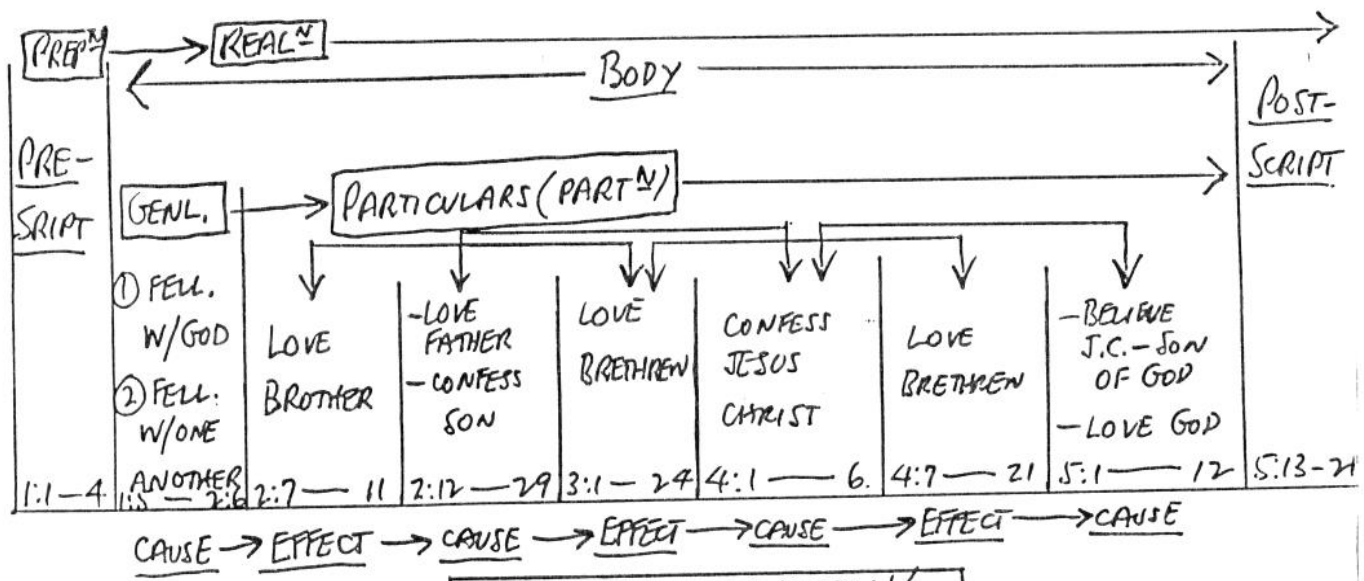 PREPᴺ → REALᴺ
BODY
PRE-
SRIPT
POST-
SCRIPT
GENL. → PARTICULARS (PARTᴺ)
① FELL.
W/GOD
② FELL.
W/ONE
ANOTHER
LOVE
BROTHER
-LOVE
FATHER
-CONFESS
SON
LOVE
BRETHREN
CONFESS
JESUS
CHRIST
LOVE
BRETHREN
-BELIEVE
J.C.-SON
OF GOD
-LOVE GOD
1:1-4 1:5-2:6 2:7-11 2:12-29 3:1-24 4:1-6. 4:7-21 5:1-12 5:13-21
CAUSE → EFFECT → CAUSE → EFFECT → CAUSE → EFFECT → CAUSE